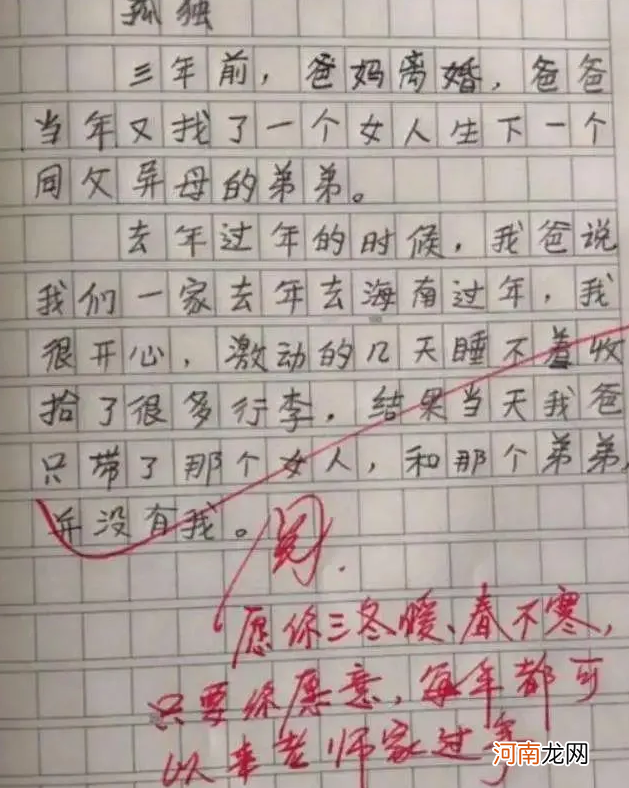 孤独
三年前，爸妈离婚，爸爸
当年又找了一个女人生下一个
同父异母的弟弟。
去年过年的时候，我爸说
我们一家去年去海南过年，我
很开心，激动的几天睡不着收
拾了很多行李，结果当天我爸
只带了那个女人，和那个弟弟，
并没有我。
阅.
愿你三冬暖、春不寒，
只要你愿意，每年都可
以来老师家过年
河南龙网